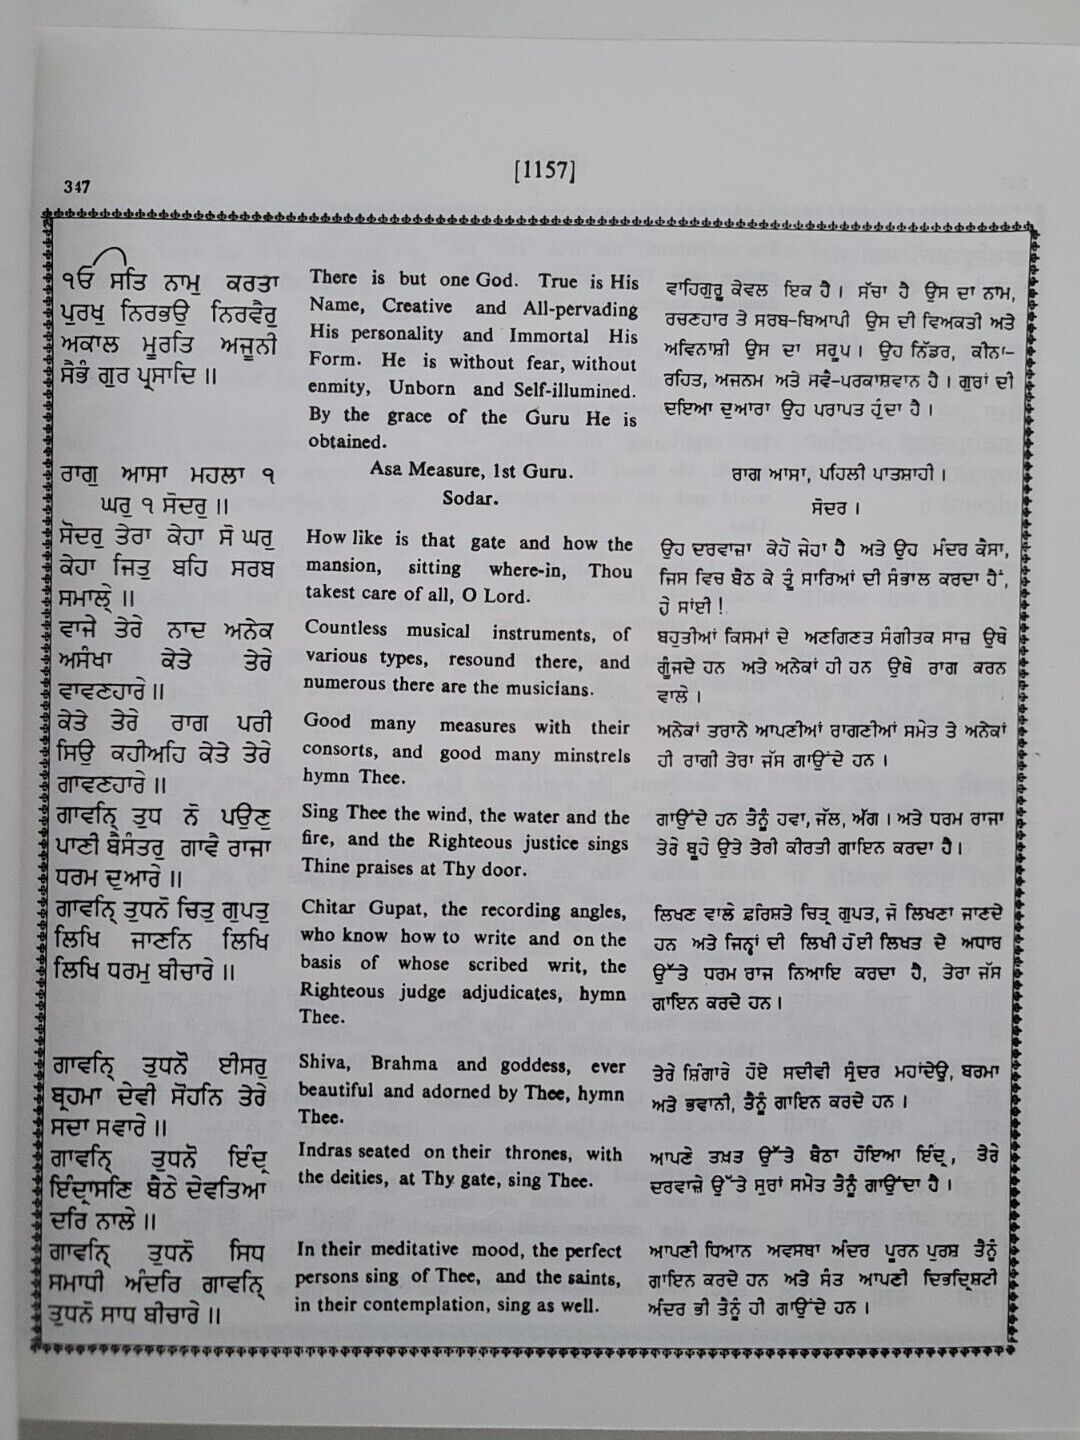 [1157]
347
ੴ ਸਤਿ ਨਾਮੁ ਕਰਤਾ
ਪੁਰਖੁ ਨਿਰਭਉ ਨਿਰਵੈਰੁ
ਅਕਾਲ ਮੂਰਤਿ ਅਜੂਨੀ
ਸੈਭੰ ਗੁਰ ਪ੍ਰਸਾਦਿ ॥
ਰਾਗੁ ਆਸਾ ਮਹਲਾ ੧
ਘਰੁ ੧ ਸੋਦਰੁ ॥
ਸੋਦਰੁ ਤੇਰਾ ਕੇਹਾ ਸੋ ਘਰੁ
ਕੇਹਾ ਜਿਤੁ ਬਹਿ ਸਰਬ
ਸਮਾਲ੍ਹੇ ॥
ਵਾਜੇ ਤੇਰੇ ਨਾਦ ਅਨੇਕ
ਅਸੰਖਾ ਕੇਤੇ ਤੇਰੇ
ਵਾਵਣਹਾਰੇ ॥
ਕੇਤੇ ਤੇਰੇ ਰਾਗ ਪਰੀ
ਸਿਉ ਕਹੀਅਹਿ ਕੇਤੇ ਤੇਰੇ
ਗਾਵਣਹਾਰੇ ॥
ਗਾਵਨ੍ਹਿ ਤੁਧ ਨੋ ਪਉਣੁ
ਪਾਣੀ ਬੈਸੰਤਰੁ ਗਾਵੈ ਰਾਜਾ
ਧਰਮ ਦੁਆਰੇ ॥
ਗਾਵਨ੍ਹਿ ਤੁਧਨੋ ਚਿਤੁ ਗੁਪਤੁ
ਲਿਖਿ ਜਾਣਨਿ ਲਿਖਿ
ਲਿਖਿ ਧਰਮੁ ਬੀਚਾਰੇ ॥
ਗਾਵਨ੍ਹਿ ਤੁਧਨੋ ਈਸਰੁ
ਬ੍ਰਹਮਾ ਦੇਵੀ ਸੋਹਨਿ ਤੇਰੇ
ਸਦਾ ਸਵਾਰੇ ॥
ਗਾਵਨ੍ਹਿ ਤੁਧਨੋ ਇੰਦ੍ਰ
ਇੰਦ੍ਰਾਸਣਿ ਬੈਠੇ ਦੇਵਤਿਆ
ਦਰਿ ਨਾਲੇ ॥
ਗਾਵਨ੍ਹਿ ਤੁਧਨੋ ਸਿਧ
ਸਮਾਧੀ ਅੰਦਰਿ ਗਾਵਨ੍ਹਿ
ਤੁਧਨੋ ਸਾਧ ਬੀਚਾਰੇ ॥
There is but one God. True is His
Name, Creative and All-pervading
His personality and Immortal His
Form. He is without fear, without
enmity, Unborn and Self-illumined.
By the grace of the Guru He is
obtained.
Asa Measure, 1st Guru.
Sodar.
How like is that gate and how the
mansion, sitting where-in, Thou
takest care of all, O Lord.
Countless musical instruments, of
various types, resound there, and
numerous there are the musicians.
Good many measures with their
consorts, and good many minstrels
hymn Thee.
Sing Thee the wind, the water and the
fire, and the Righteous justice sings
Thine praises at Thy door.
Chitar Gupat, the recording angles,
who know how to write and on the
basis of whose scribed writ, the
Righteous judge adjudicates, hymn
Thee.
Shiva, Brahma and goddess, ever
beautiful and adorned by Thee, hymn
Thee.
Indras seated on their thrones, with
the deities, at Thy gate, sing Thee.
In their meditative mood, the perfect
persons sing of Thee, and the saints,
in their contemplation, sing as well.
ਵਾਹਿਗੁਰੂ ਕੇਵਲ ਇਕ ਹੈ। ਸੱਚਾ ਹੈ ਉਸ ਦਾ ਨਾਮ,
ਰਚਣਹਾਰ ਤੇ ਸਰਬ-ਬਿਆਪੀ ਉਸ ਦੀ ਵਿਅਕਤੀ ਅਤੇ
ਅਵਿਨਾਸ਼ੀ ਉਸ ਦਾ ਸਰੂਪ। ਉਹ ਨਿੱਡਰ, ਕੀਨਾ-
ਰਹਿਤ, ਅਜਨਮ ਅਤੇ ਸਵੈ-ਪਰਕਾਸ਼ਵਾਨ ਹੈ। ਗੁਰਾਂ ਦੀ
ਦਇਆ ਦੁਆਰਾ ਉਹ ਪਰਾਪਤ ਹੁੰਦਾ ਹੈ।
ਰਾਗ ਆਸਾ, ਪਹਿਲੀ ਪਾਤਸ਼ਾਹੀ।
ਸੋਦਰ।
ਉਹ ਦਰਵਾਜ਼ਾ ਕੇਹੋ ਜੇਹਾ ਹੈ ਅਤੇ ਉਹ ਮੰਦਰ ਕੈਸਾ,
ਜਿਸ ਵਿਚ ਬੈਠ ਕੇ ਤੂੰ ਸਾਰਿਆਂ ਦੀ ਸੰਭਾਲ ਕਰਦਾ ਹੈਂ,
ਹੇ ਸਾਂਈ !
ਬਹੁਤੀਆਂ ਕਿਸਮਾਂ ਦੇ ਅਣਗਿਣਤ ਸੰਗੀਤਕ ਸਾਜ਼ ਉਥੇ
ਗੂੰਜਦੇ ਹਨ ਅਤੇ ਅਨੇਕਾਂ ਹੀ ਹਨ ਉਥੇ ਰਾਗ ਕਰਨ
ਵਾਲੇ।
ਅਨੇਕਾਂ ਤਰਾਨੇ ਆਪਣੀਆਂ ਰਾਗਣੀਆਂ ਸਮੇਤ ਤੇ ਅਨੇਕਾਂ
ਹੀ ਰਾਗੀ ਤੇਰਾ ਜੱਸ ਗਾਉਂਦੇ ਹਨ।
ਗਾਉਂਦੇ ਹਨ ਤੈਨੂੰ ਹਵਾ, ਜੱਲ, ਅੱਗ। ਅਤੇ ਧਰਮ ਰਾਜਾ
ਤੇਰੇ ਬੂਹੇ ਉਤੇ ਤੇਰੀ ਕੀਰਤੀ ਗਾਇਨ ਕਰਦਾ ਹੈ।
ਲਿਖਣ ਵਾਲੇ ਫ਼ਰਿਸ਼ਤੇ ਚਿਤ੍ਰ ਗੁਪਤ, ਜੋ ਲਿਖਣਾ ਜਾਣਦੇ
ਹਨ ਅਤੇ ਜਿਨ੍ਹਾਂ ਦੀ ਲਿਖੀ ਹੋਈ ਲਿਖਤ ਦੇ ਅਧਾਰ
ਉੱਤੇ ਧਰਮ ਰਾਜ ਨਿਆਇ ਕਰਦਾ ਹੈ, ਤੇਰਾ ਜੱਸ
ਗਾਇਨ ਕਰਦੇ ਹਨ।
ਤੇਰੇ ਸ਼ਿੰਗਾਰੇ ਹੋਏ ਸਦੀਵੀ ਸੁੰਦਰ ਮਹਾਂਦੇਉ, ਬਰਮਾ
ਅਤੇ ਭਵਾਨੀ, ਤੈਨੂੰ ਗਾਇਨ ਕਰਦੇ ਹਨ।
ਆਪਣੇ ਤਖ਼ਤ ਉੱਤੇ ਬੈਠਾ ਹੋਇਆ ਇੰਦ੍ਰ, ਤੇਰੇ
ਦਰਵਾਜ਼ੇ ਉੱਤੇ ਸੁਰਾਂ ਸਮੇਤ ਤੈਨੂੰ ਗਾਉਂਦਾ ਹੈ।
ਆਪਣੀ ਧਿਆਨ ਅਵਸਥਾ ਅੰਦਰ ਪੂਰਨ ਪੁਰਸ਼ ਤੈਨੂੰ
ਗਾਇਨ ਕਰਦੇ ਹਨ ਅਤੇ ਸੰਤ ਆਪਣੀ ਦਿਭਦ੍ਰਿਸ਼ਟੀ
ਅੰਦਰ ਭੀ ਤੈਨੂੰ ਹੀ ਗਾਉਂਦੇ ਹਨ।